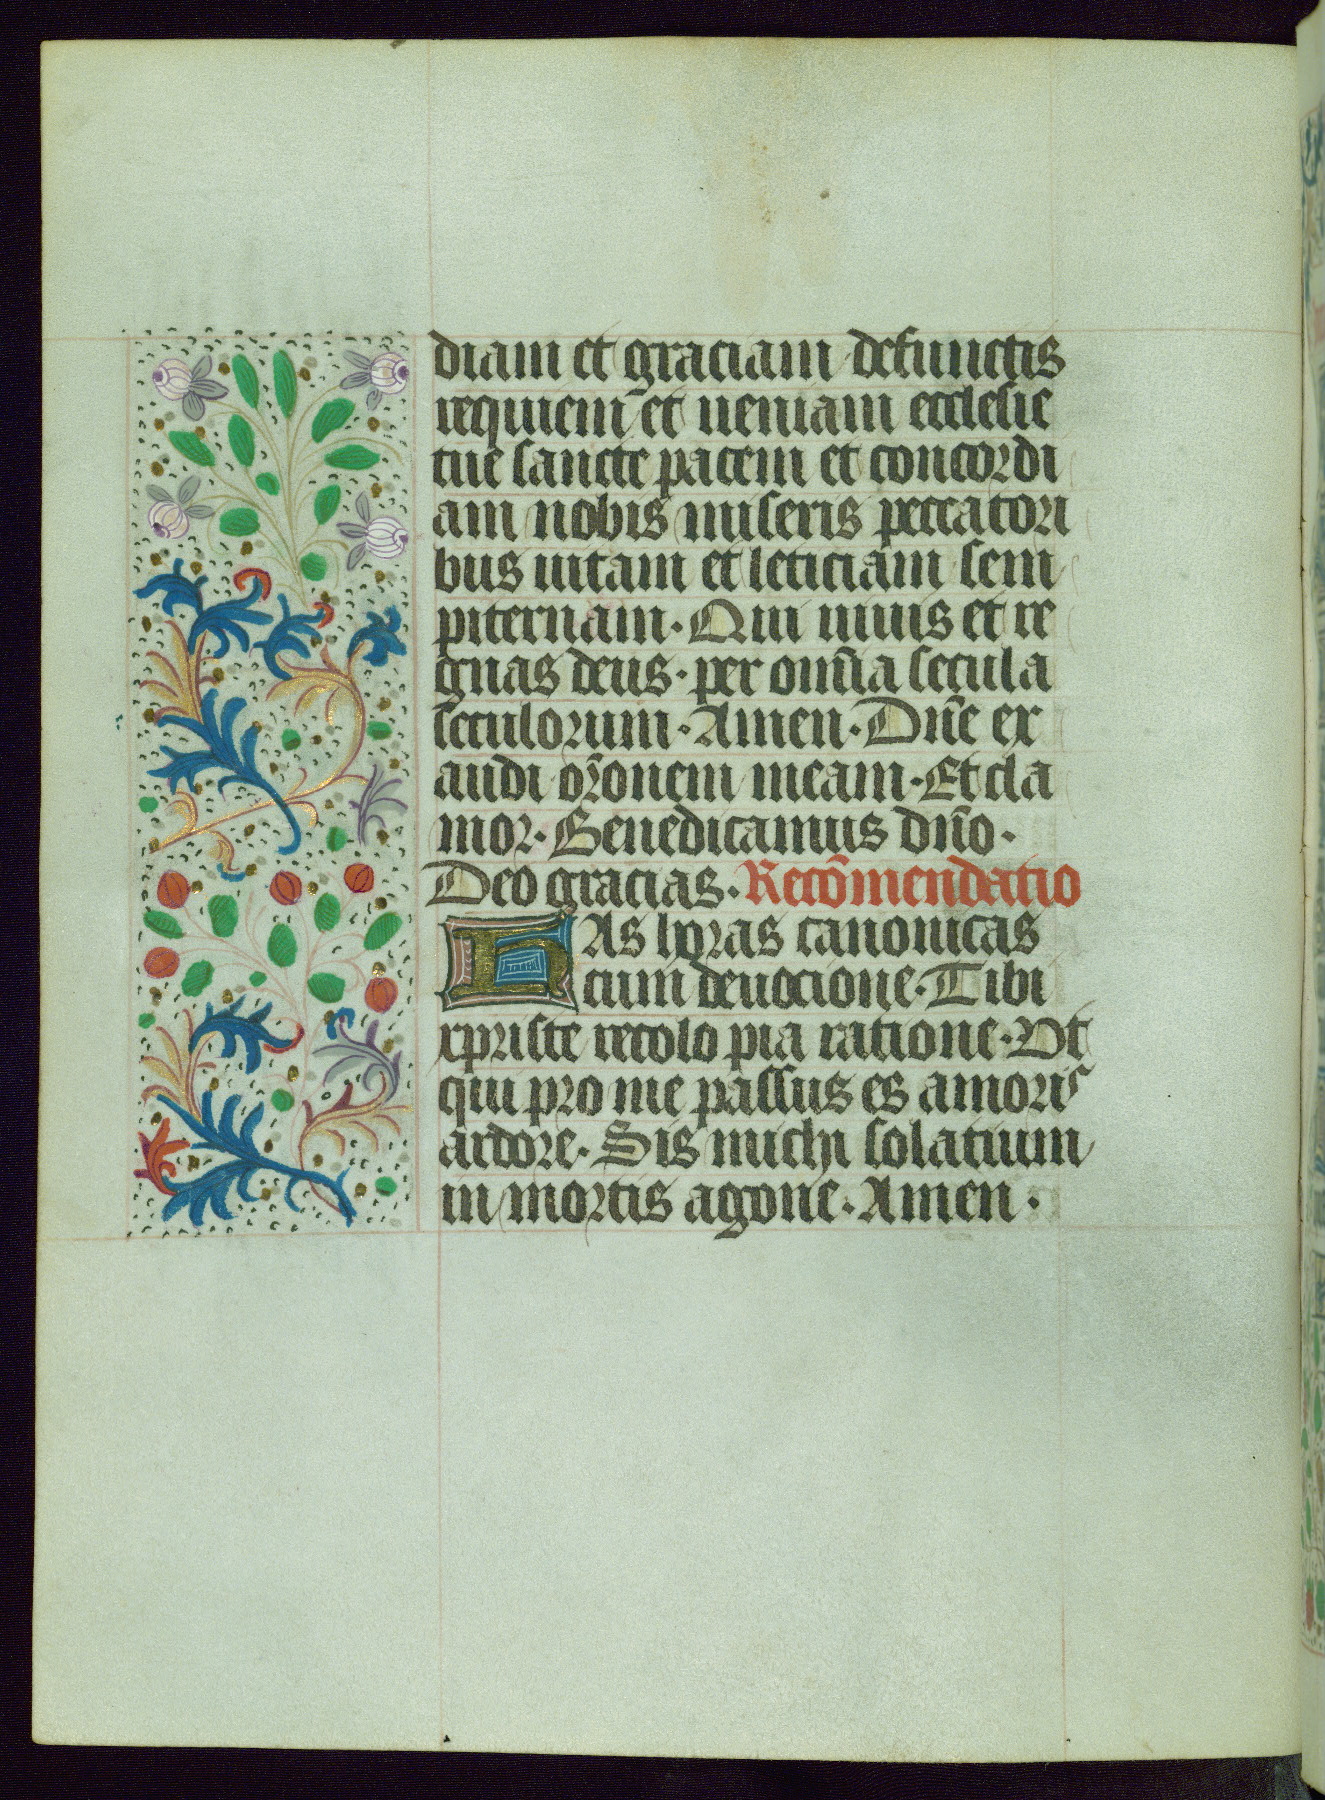 diam et graciam defunctis
requiem et ueniam ecclesie
tue sancte pacem et concordi
am nobis miseris peccatori
bus uitam et leticiam sem
piternam · Qui uiuis et re
gnas deus · per om̄ia secula
seculorum · Amen · Dn̄e ex
audi or̄onem meam · Et cla
mor · Benedicamus dn̄o ·
Deo gracias · Recōmendatio
HAs horas canonicas
cum deuocione · Tibi
xpriste recolo pia ratione · Ut
qui pro me passus es amoris
ardore · Sis michi solatium
in mortis agone · Amen ·